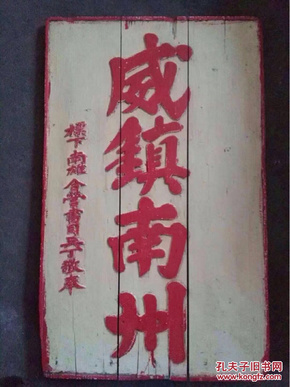 威鎮南州
標下南雄合營書司兵丁敬奉
孔夫子旧书网